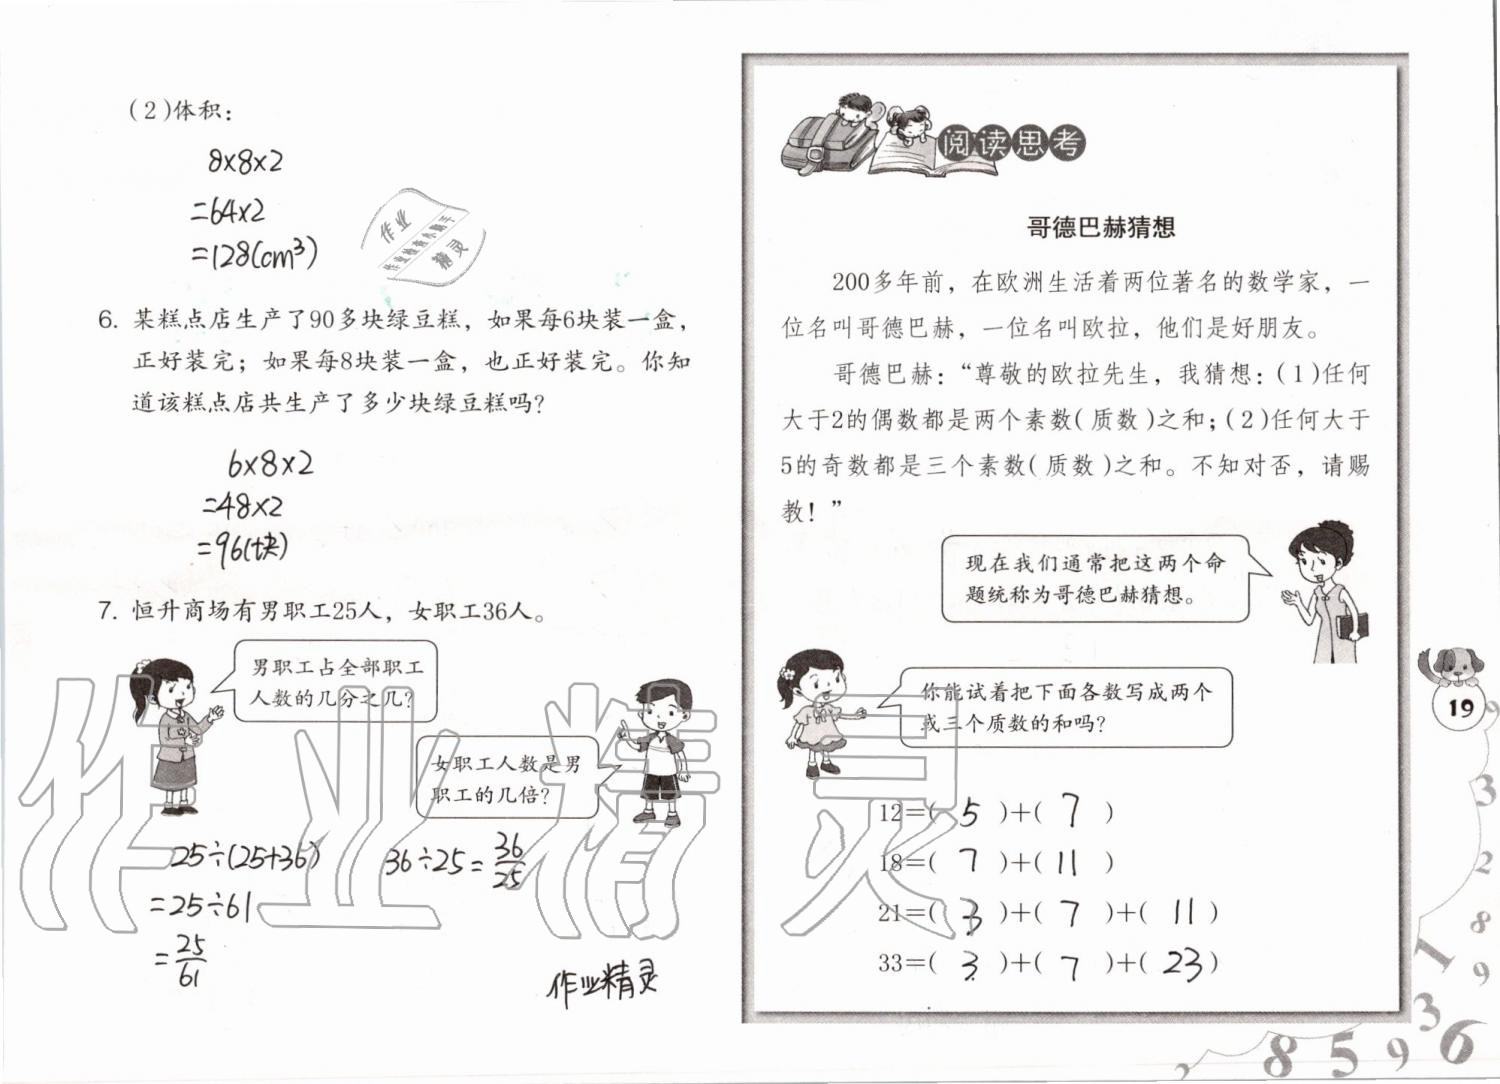 (2)体积:
8×8×2
=64×2
=128(cm³)
作业
作业检查小助手
精灵
6. 某糕点店生产了90多块绿豆糕，如果每6块装一盒，
正好装完；如果每8块装一盒，也正好装完。你知
道该糕点店共生产了多少块绿豆糕吗？
6×8×2
=48×2
=96(块)
7. 恒升商场有男职工25人，女职工36人。
男职工占全部职工
人数的几分之几？
女职工人数是男
职工的几倍？
25÷(25+36)
=25÷61
=25/61
36÷25=36/25
作业精灵
作业精灵
阅读思考
哥德巴赫猜想
200多年前，在欧洲生活着两位著名的数学家，一
位名叫哥德巴赫，一位名叫欧拉，他们是好朋友。
哥德巴赫：“尊敬的欧拉先生，我猜想：(1)任何
大于2的偶数都是两个素数(质数)之和；(2)任何大于
5的奇数都是三个素数(质数)之和。不知对否，请赐
教！”
现在我们通常把这两个命
题统称为哥德巴赫猜想。
你能试着把下面各数写成两个
或三个质数的和吗？
12=( 5 )+( 7 )
18=( 7 )+( 11 )
21=( 3 )+( 7 )+( 11 )
33=( 3 )+( 7 )+( 23 )
19
9
3
2
8
9
1
3
6
2
8
5
9